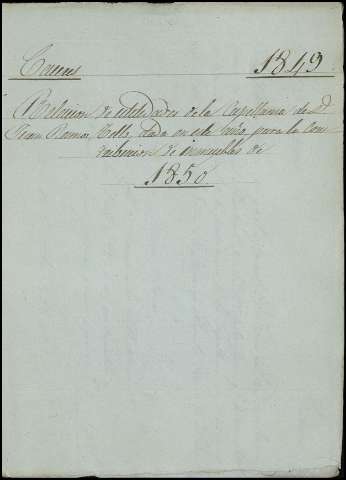 Caceres 1849.
Relacion de utilidades de la Capellania de D.
Juan Ramos Tello, dada en este año, para la con-
tribucion de inmuebles de
1850